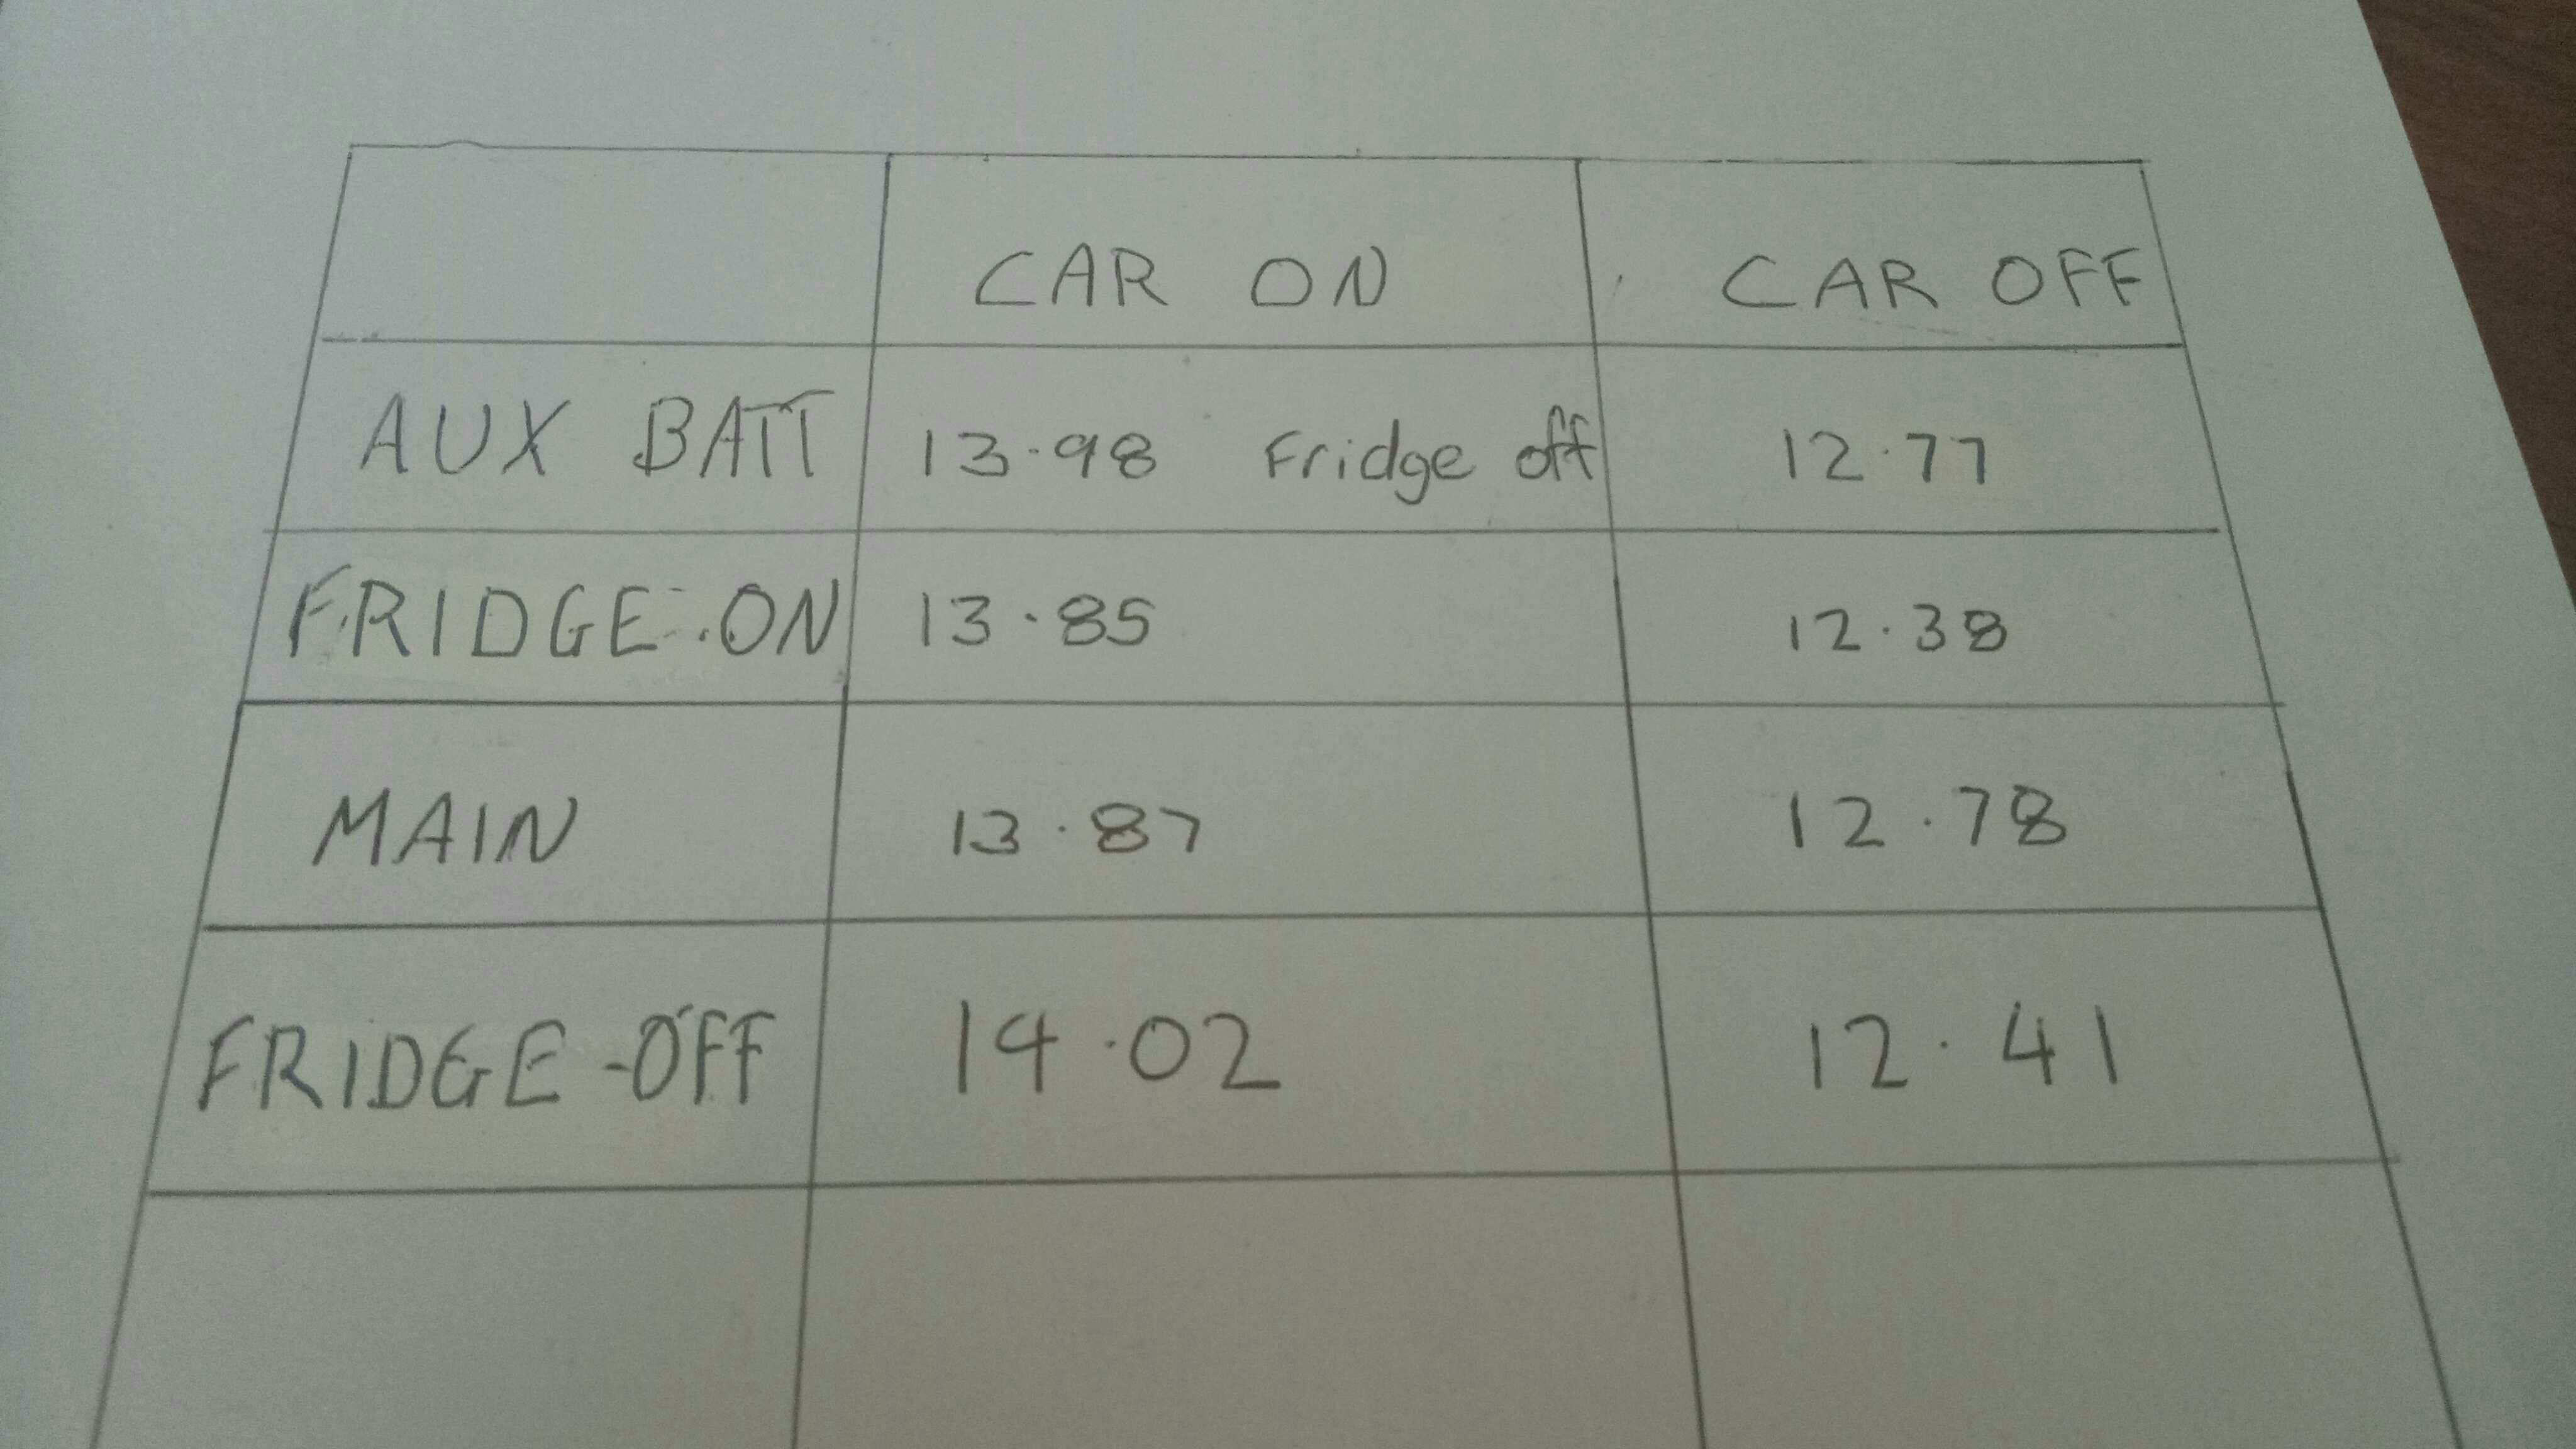 CAR ON CAR OFF
AUX BATT 13.98 Fridge off 12.77
FRIDGE-ON 13.85 12.38
MAIN 13.87 12.78
FRIDGE-OFF 14.02 12.41